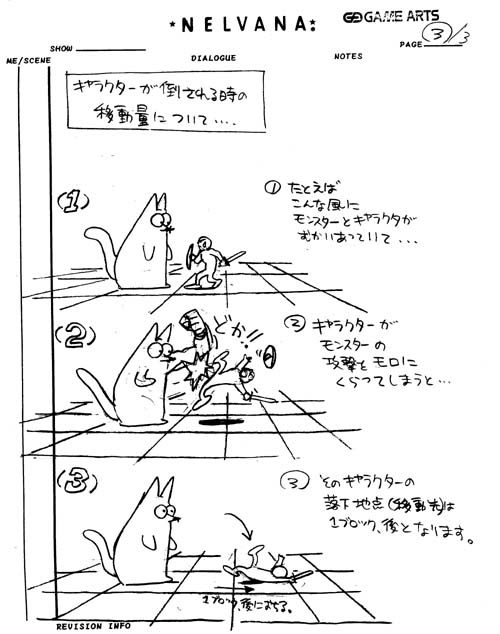 *NELVANA:
GAME ARTS
SHOW
PAGE 3/3
ME/SCENE
DIALOGUE
NOTES
キャラクターが倒される時の
移動量について....
(1)
① たとえば
こんな風に
モンスターとキャラクタが
むかいあっていて...
(2)
どか!!
② キャラクターが
モンスターの
攻撃をモロに
くらってしまうと...
(3)
③ そのキャラクターの
落下地点(移動先)は
1ブロック、後となります。
1ブロック、後におちる。
REVISION INFO